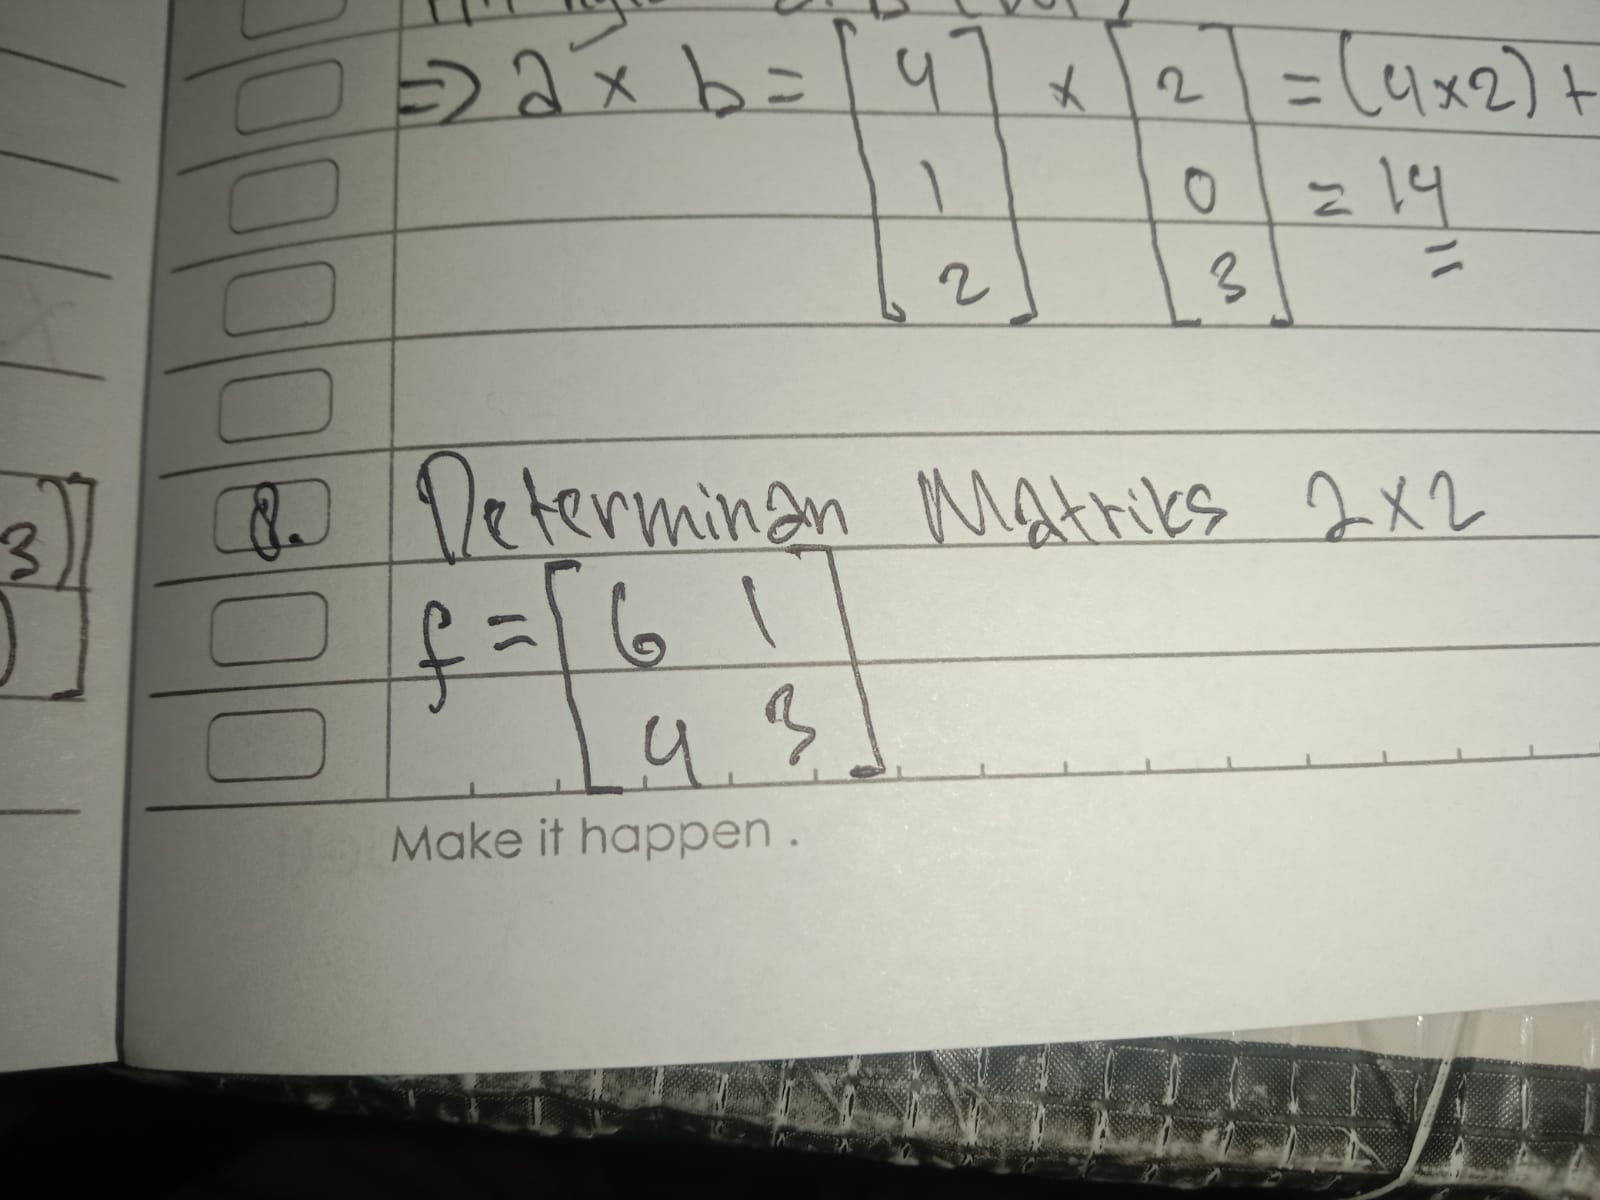 => a x b = [4] x [2] = (4x2) +
1 0 = 14
2 3
3)]
)
8. Determinan Matriks 2x2
f = [6 1
4 3]
Make it happen.